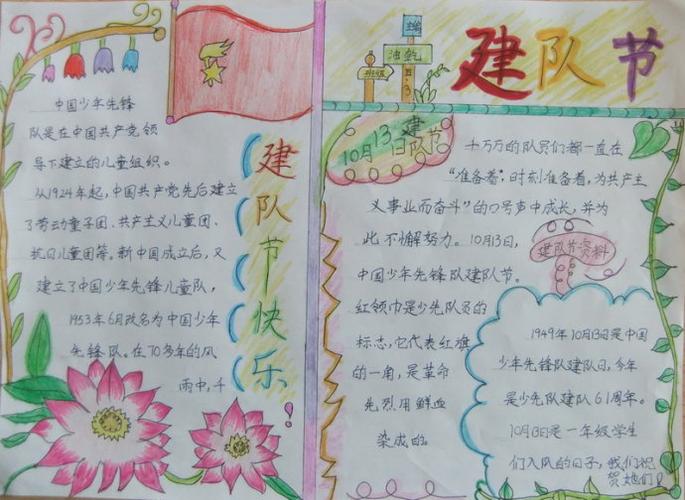 中国少年先锋
队是在中国共产党领
导下建立的儿童组织。
从1924年起,中国共产党先后建立
了劳动童子团、共产主义儿童团、
抗日儿童团等,新中国成立后,又
建立了中国少年先锋儿童队,
1953年6月改名为中国少年
先锋队。在70多年的风
雨中,千
建队节快乐!
主编
班级
建队节
10月13日建队节
千万万的队员们都一直在
“准备着”;时刻准备着,为共产主
义事业而奋斗”的口号声中成长,并为
此不懈努力。10月13日,
中国少年先锋队建队节。
红领巾是少先队员的
标志,它代表红旗
的一角,是革命
先烈用鲜血
染成的。
建队节资料
1949年10月13日是中国
少年先锋队建队日,今年
是少先队建队61周年。
10月13日是一年级学生
们入队的日子,我们祝
贺她们